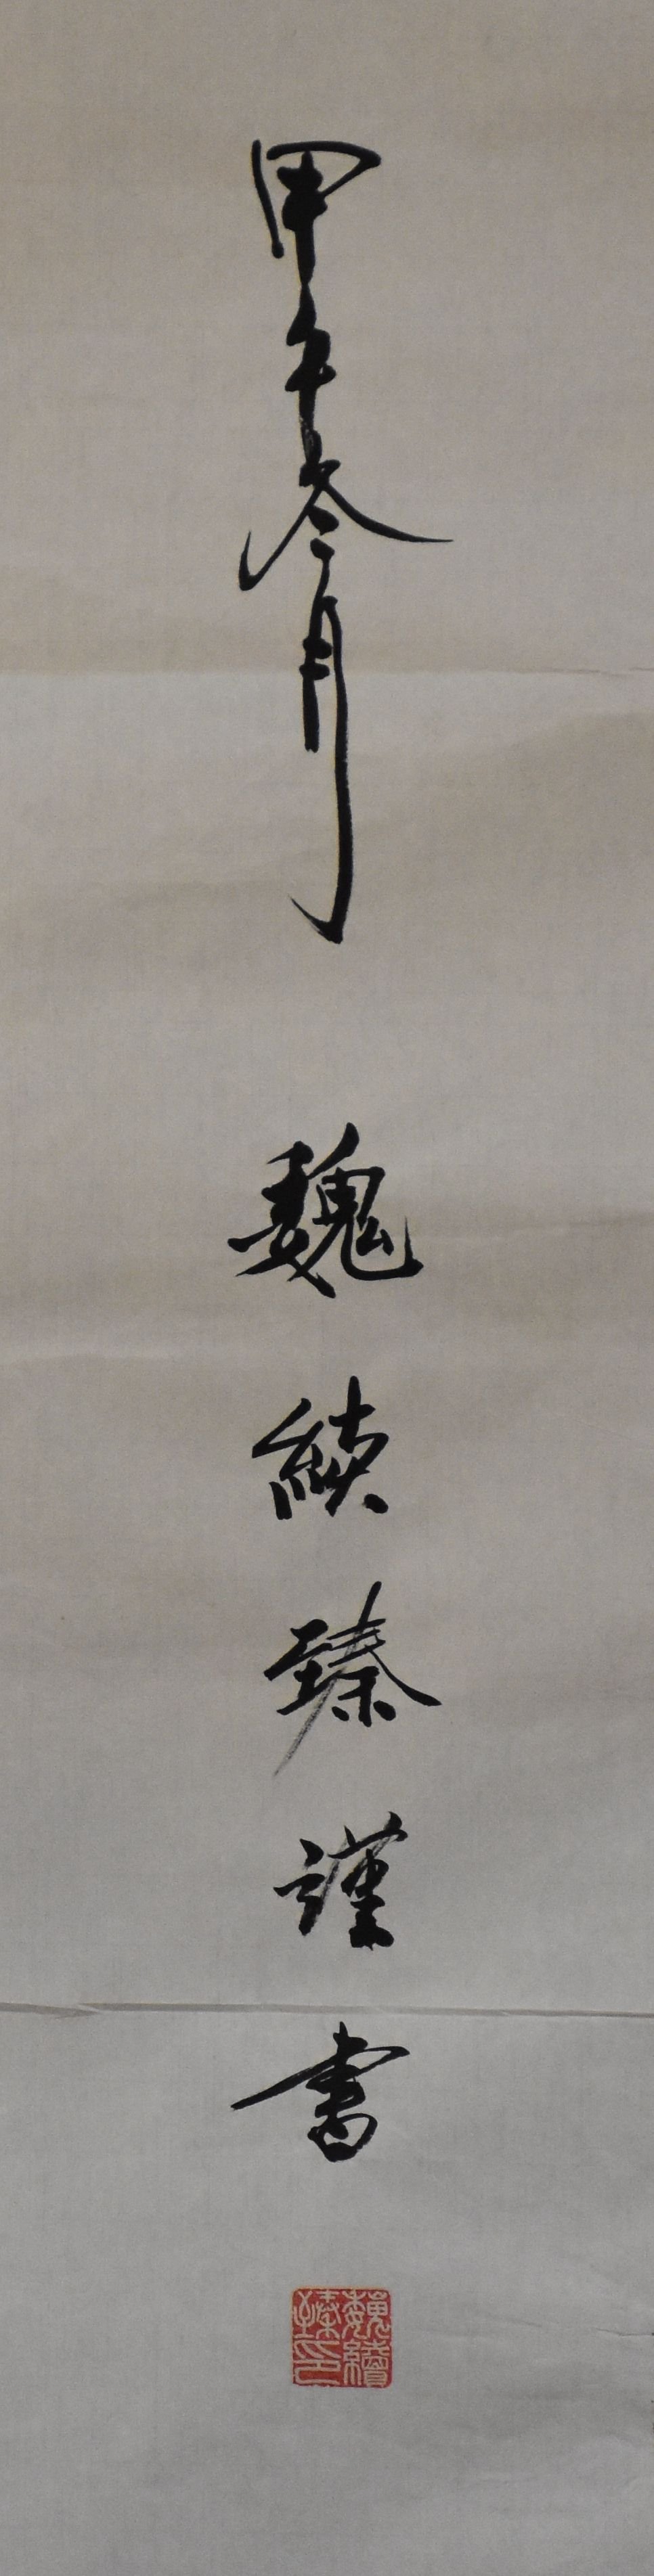 甲午冬月 魏续臻谨書
魏續
臻印